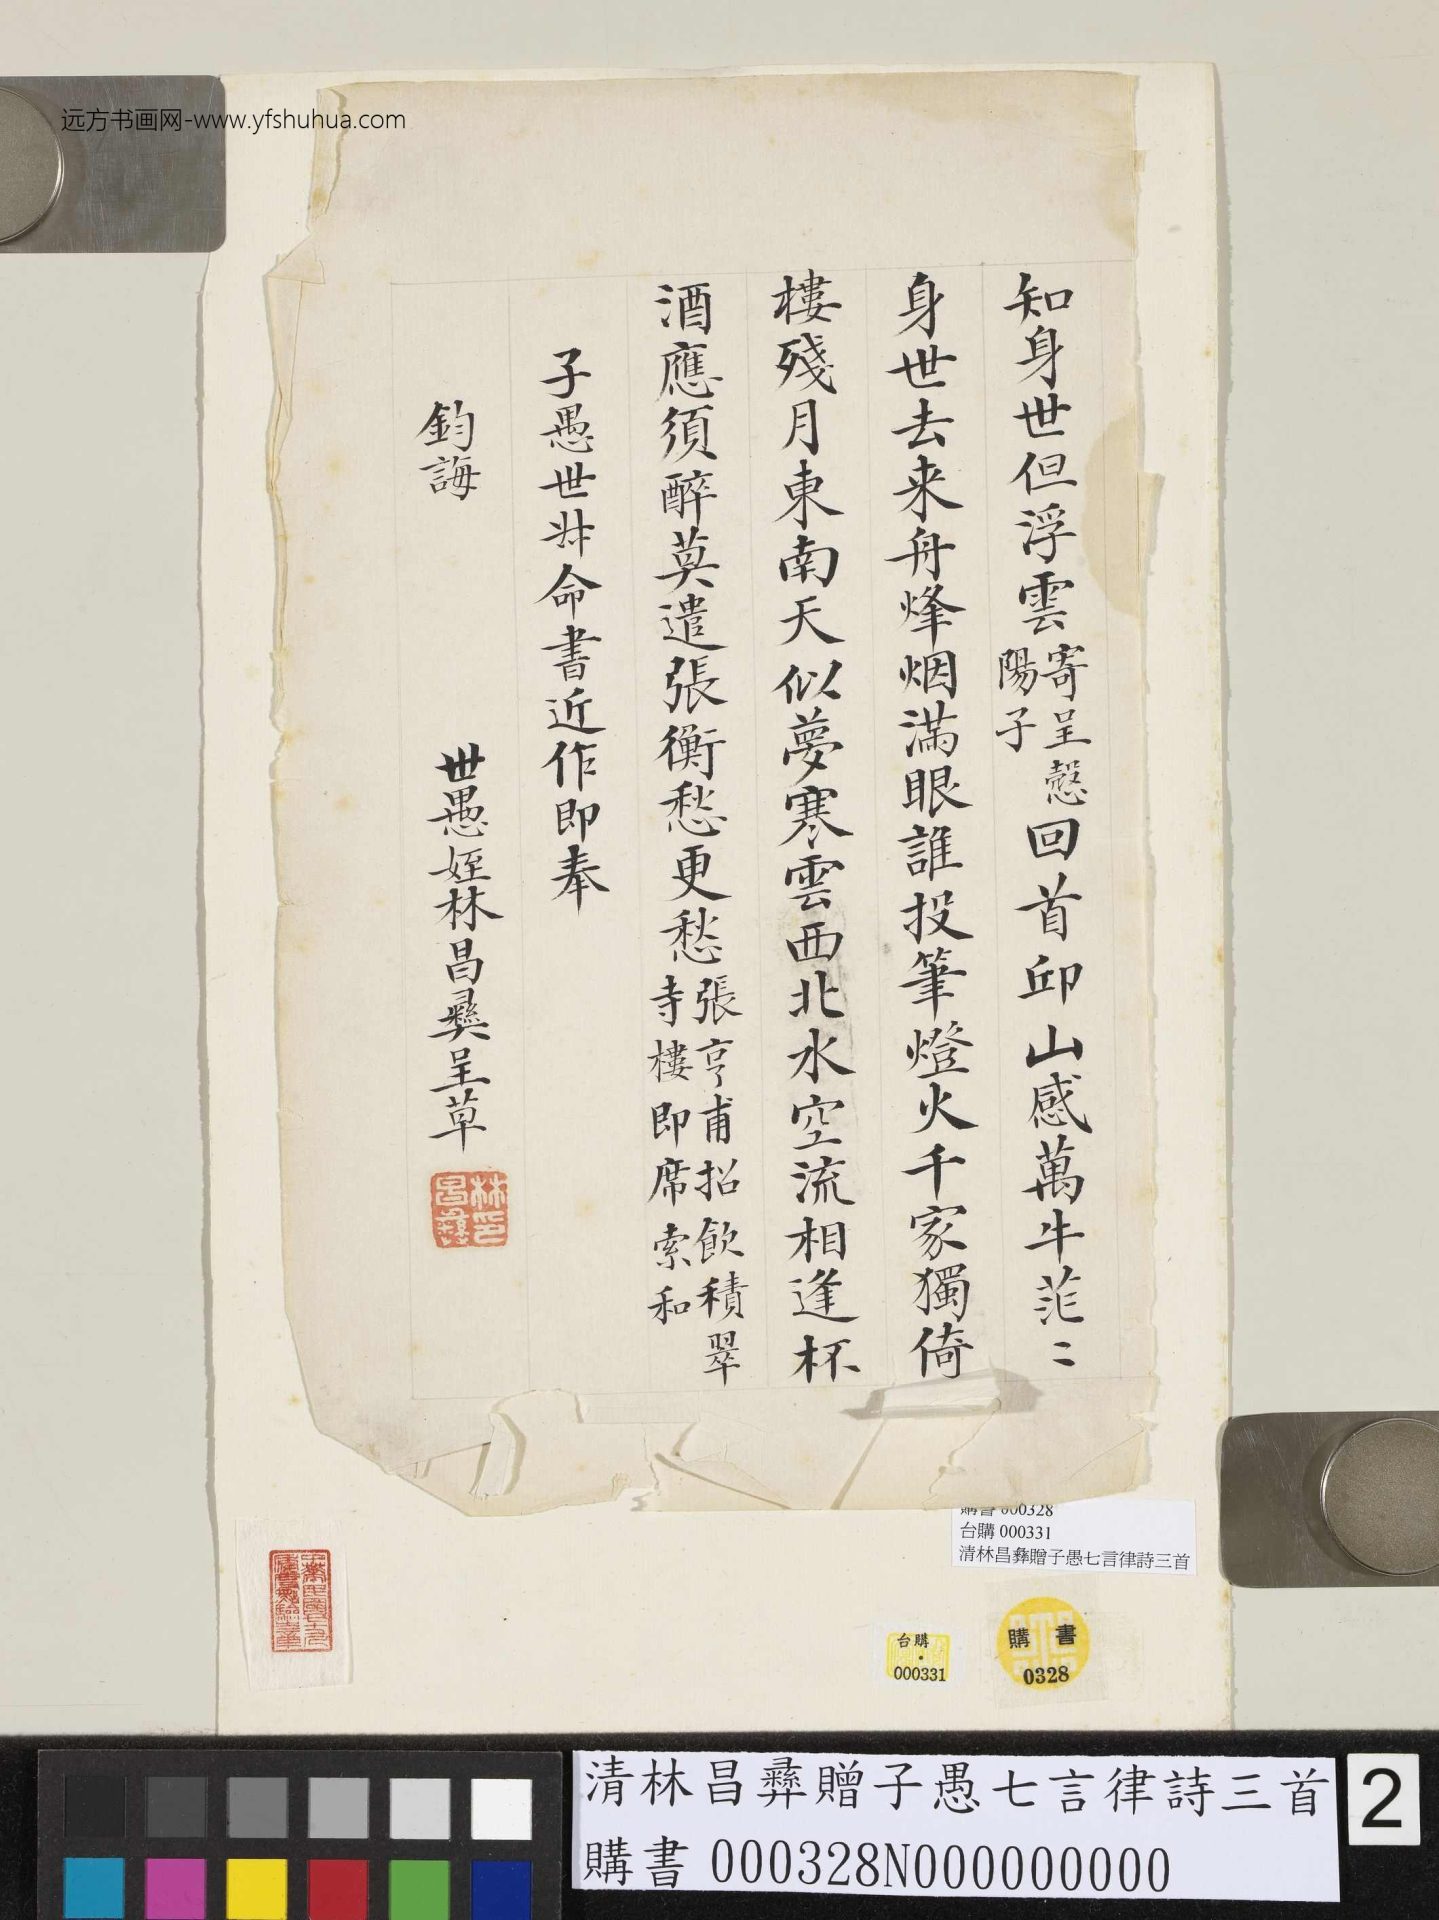 远方书画网-www.yfshuhua.com
知身世但浮雲寄呈慤陽子回首邱山感萬牛茫〻
身世去来舟烽烟滿眼誰投筆燈火千家獨倚
樓殘月東南天似夢寒雲西北水空流相逢杯
酒應須醉莫遣張衡愁更愁張亨甫招飲積翠寺樓即席索和
子愚世丼命書近作即奉
鈞誨
世愚姪林昌彝呈草
林印昌彝
購書 000328
台購 000331
清林昌彝贈子愚七言律詩三首
台購
000331
購書
0328
清林昌彝贈子愚七言律詩三首
購書 000328N000000000
2